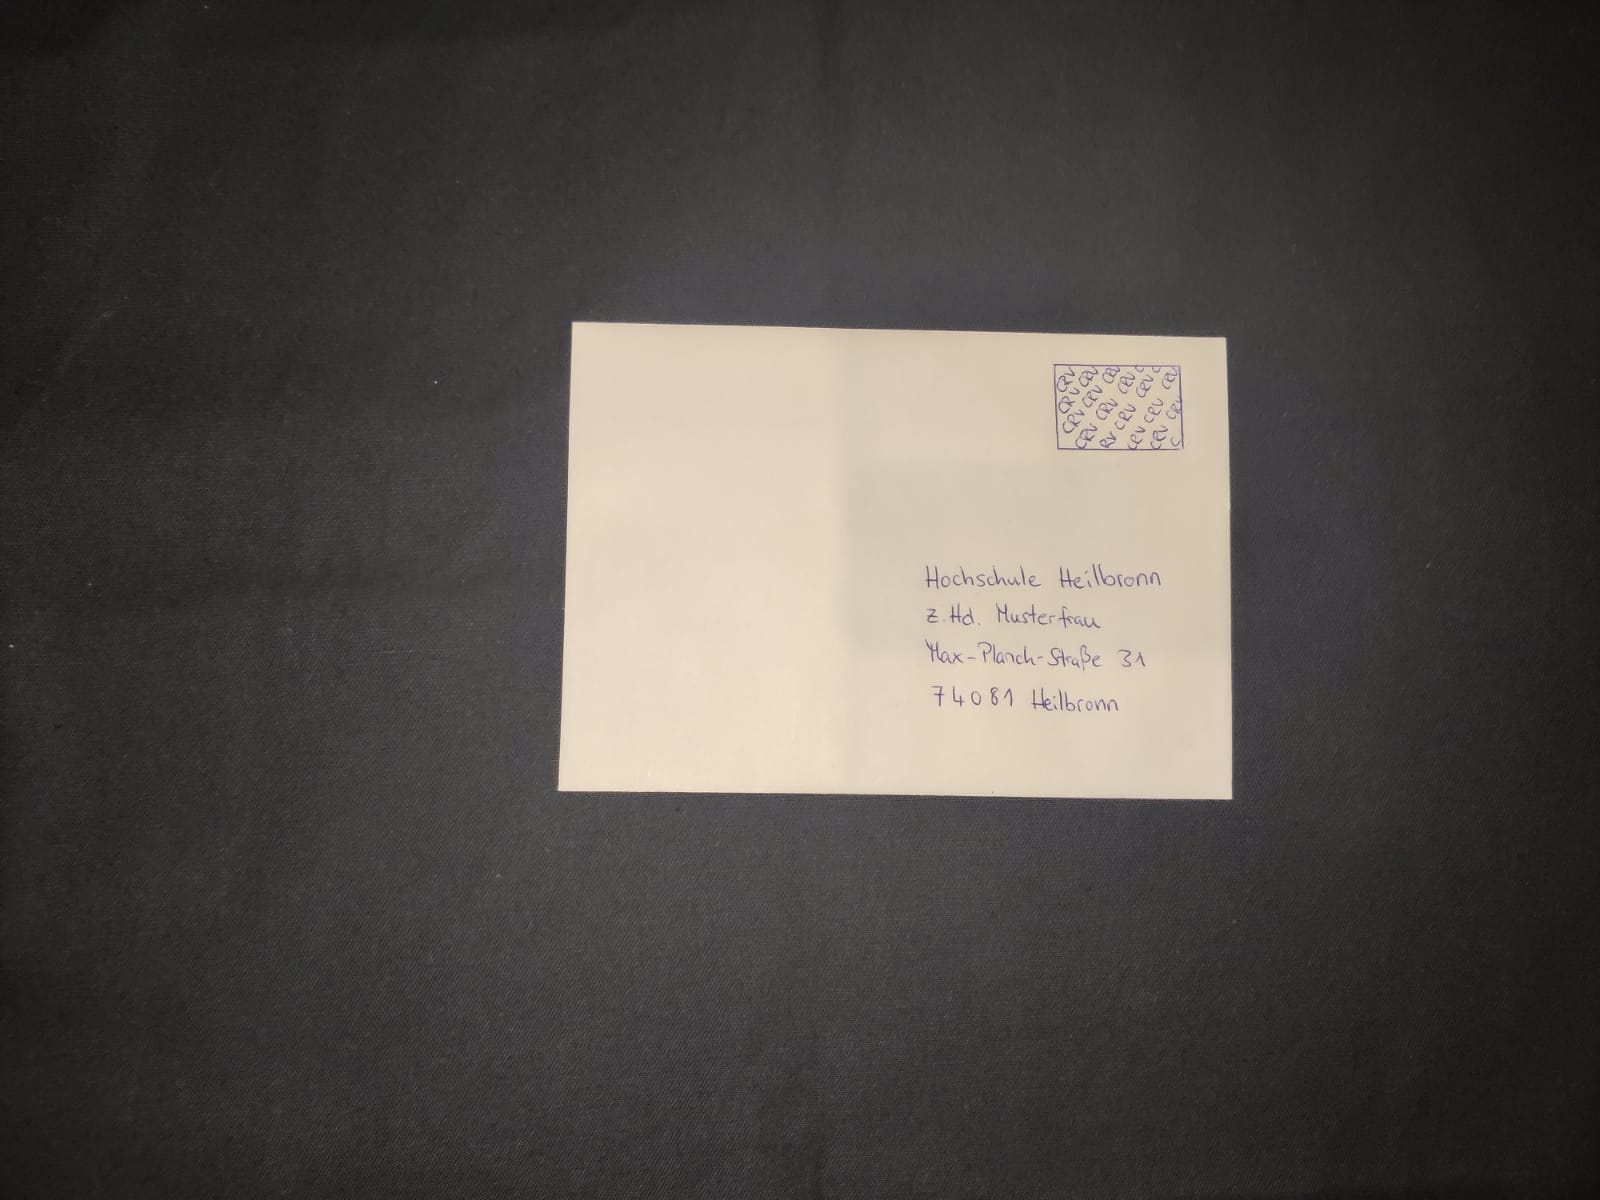 CRV CRV CRV CRV C
CRV CRV CRV CRV CRV
CRV CRV CRV CRV
RV CRV CRV CRV
CRV C
Hochschule Heilbronn
z. Hd. Musterfrau
Max-Planck-Straße 31
74081 Heilbronn